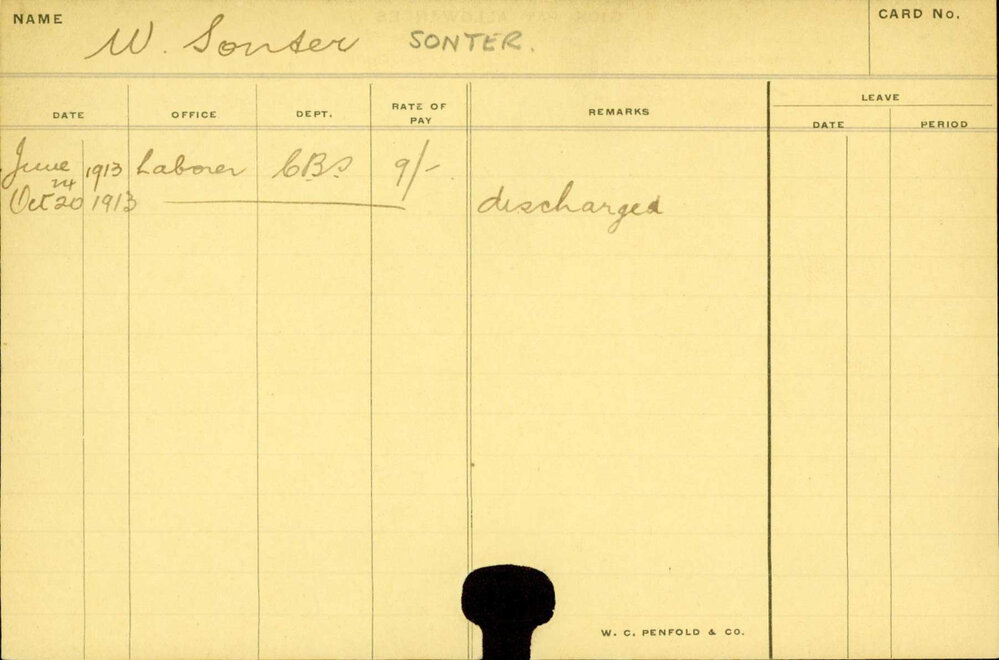 NAME W. Sonter SONTER. CARD No.
DATE OFFICE DEPT. RATE OF PAY REMARKS LEAVE
DATE PERIOD
June 24 1913 Laborer CBs 9/-
Oct 20 1913 discharged
W. C. PENFOLD & CO.